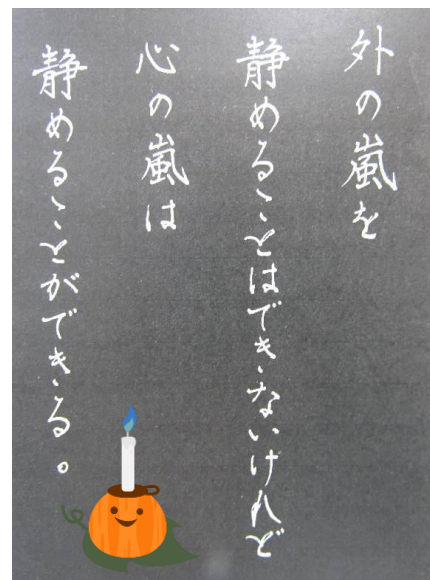 外の嵐を
静めることはできないけれど
心の嵐は
静めることができる。